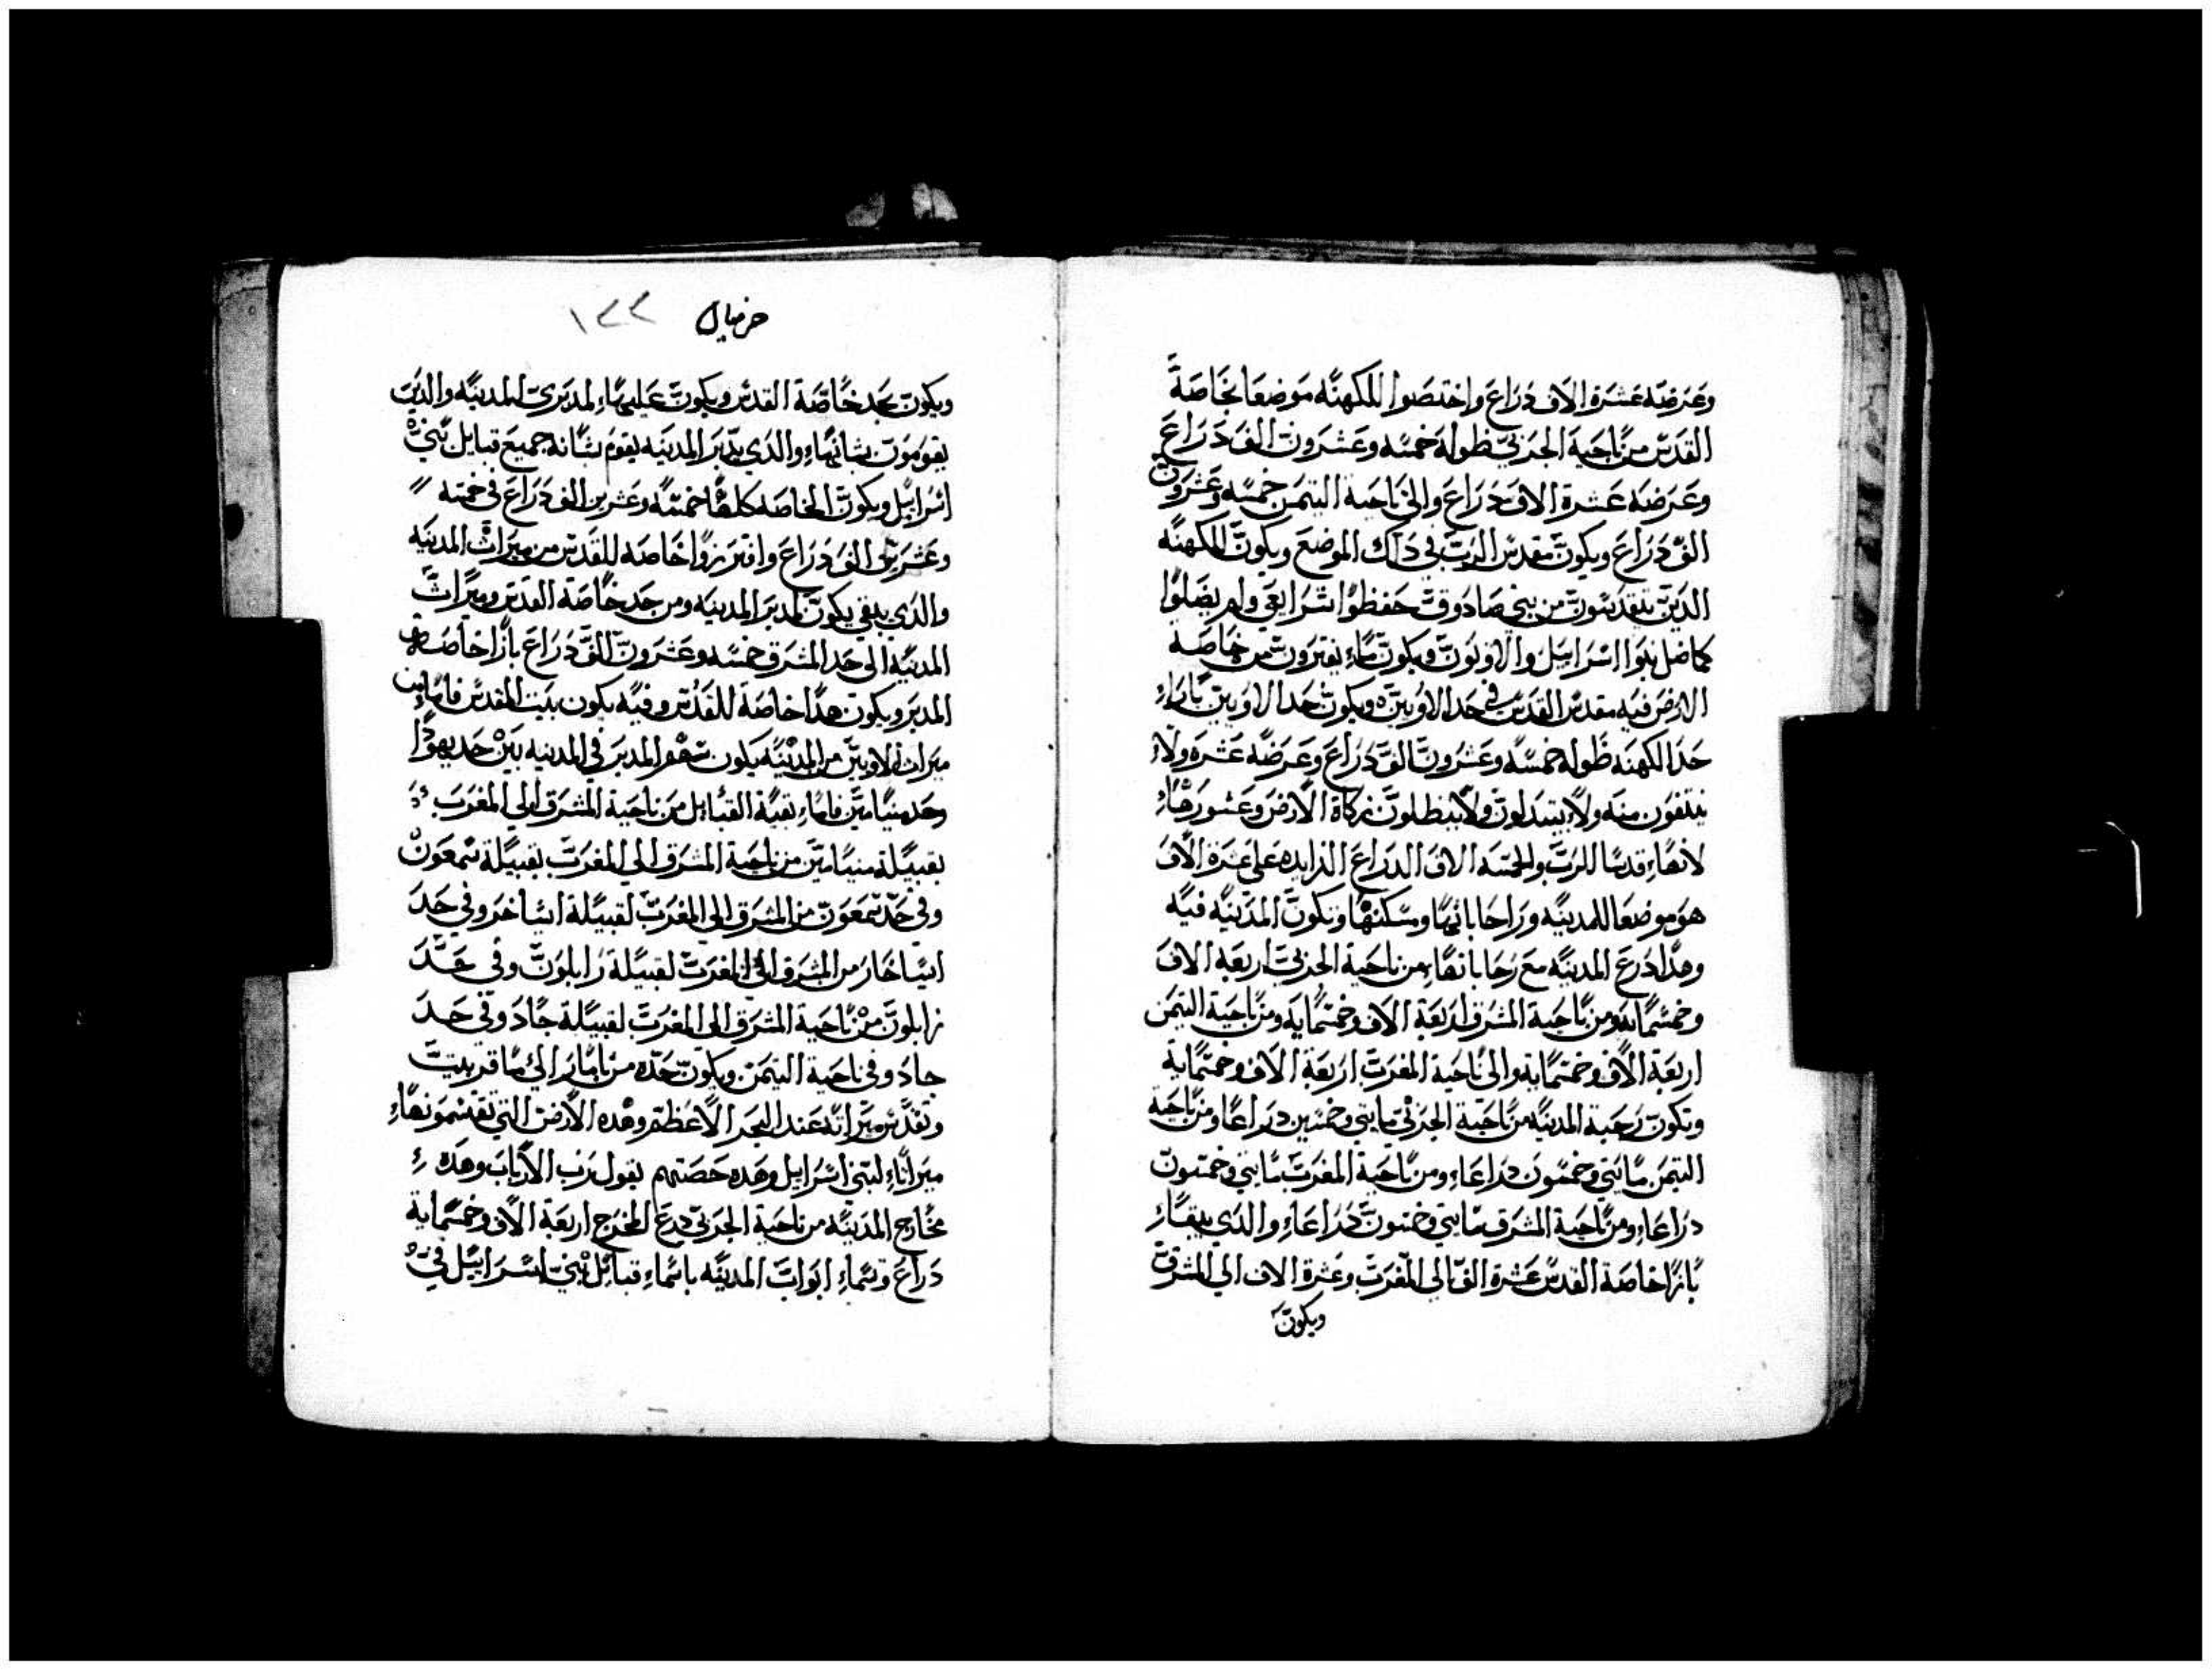 وعرضه عشرة الاف دراع واختصوا للكهنه موضعا بخاصة
القدس من ناحية الجربي طوله خمسه وعشرون الف دراع
وعرضه عشرة الاف دراع والى ناحية التيمن خمسه وعشرون
الف دراع ويكون مقدس الرب في داك الموضع ويكون للكهنه
الدين يتقدسون من بني صادوق حفظوا شرايعي ولم يضلوا
كما ضل بنوا اسراييل والاويون ويكون ماء يفترون من خاصة
الارض فيه مقدس القدس في حد الاويين ويكون حد الاويين بازاء
حد الكهنه طوله خمسه وعشرون الف دراع وعرضه عشره ولا
منه ولا يبتدلون ولا يبطلون زكاة الارض وعشورها
لانهاء قدسا للرب والخمسه الاف الدراع الزايده على عشرة الاف
هو موضعا للمدينه وراحاباتها وسكنها وتكون المدينه فيه
وهدا درع المدينه مع رحاباتهاء من ناحية الجربي اربعة الاف
وخمسمايه ومن ناحية المشرق اربعة الاف وخمسمايه ومن ناحية التيمن
اربعة الاف وخمسمايه والى ناحية المغرب اربعة الاف وخمسماية
وتكون رحبة المدينه من ناحية الجربي مايتي وخمسين دراعا ومن ناحية
التيمن مايتي وخمسون دراعاء ومن ناحية المغرب مايتي وخمسون
دراعاء ومن ناحية المشرق مايتي وخمسون دراعاء والدي يبقاء
بازا خاصة القدس عشرة الف الى المغرب وعشرة الاف الى المشرق
ويكون
حزقيال ١٢٢
ويكون بحد خاصة القدس ويكون عليهاء لمدبري المدينه والدين
يقومون بشانهاء والدي يدبر المدينه يقوم بشانه جميع قبايل بني
اسراييل ويكون الخاصه كلها خمسه وعشرين الف دراع في خمسه
وعشرين الف دراع وافترزوا خاصه للقدس من ميراث المدينه
والدي يبقي يكون لمدبر المدينه ومن حد خاصة القدس وميراث
المدينه الى حد المشرق خمسه وعشرون الف دراع بازا خاصة
المدبر ويكون هدا خاصة للقدس وفيه يكون بيت المقدس فاما
ميراث الاويين من المدينه يكون سهم المدبر في المدينه بين حد يهودا
وحد منيامين فاماء بقية القبايل من ناحية المشرق الى المغرب
بقبيلة منيامين من ناحية المشرق الى المغرب بقبيلة شمعون
وفي حد شمعون من المشرق الى المغرب لقبيلة ايساخر وفي حد
ايساخار من المشرق الى المغرب لقبيلة زابلون وفي حد
زابلون من ناحية المشرق الى المغرب لقبيلة جاد وفي حد
جاد وفي ناحية التيمن ويكون حده من تامار الى ما قريبت
وتقدس ميراته عند البحر الاعظم وهده الارض التي تقسمونهاء
ميراتاء لبني اسراييل وهده حصتهم يقول رب الارباب وهده
مخارج المدينه من ناحية الجربي درع المخرج اربعة الاف وخمسماية
دراع وتسماء ابواب المدينه باسماء قبايل بني اسراييل في